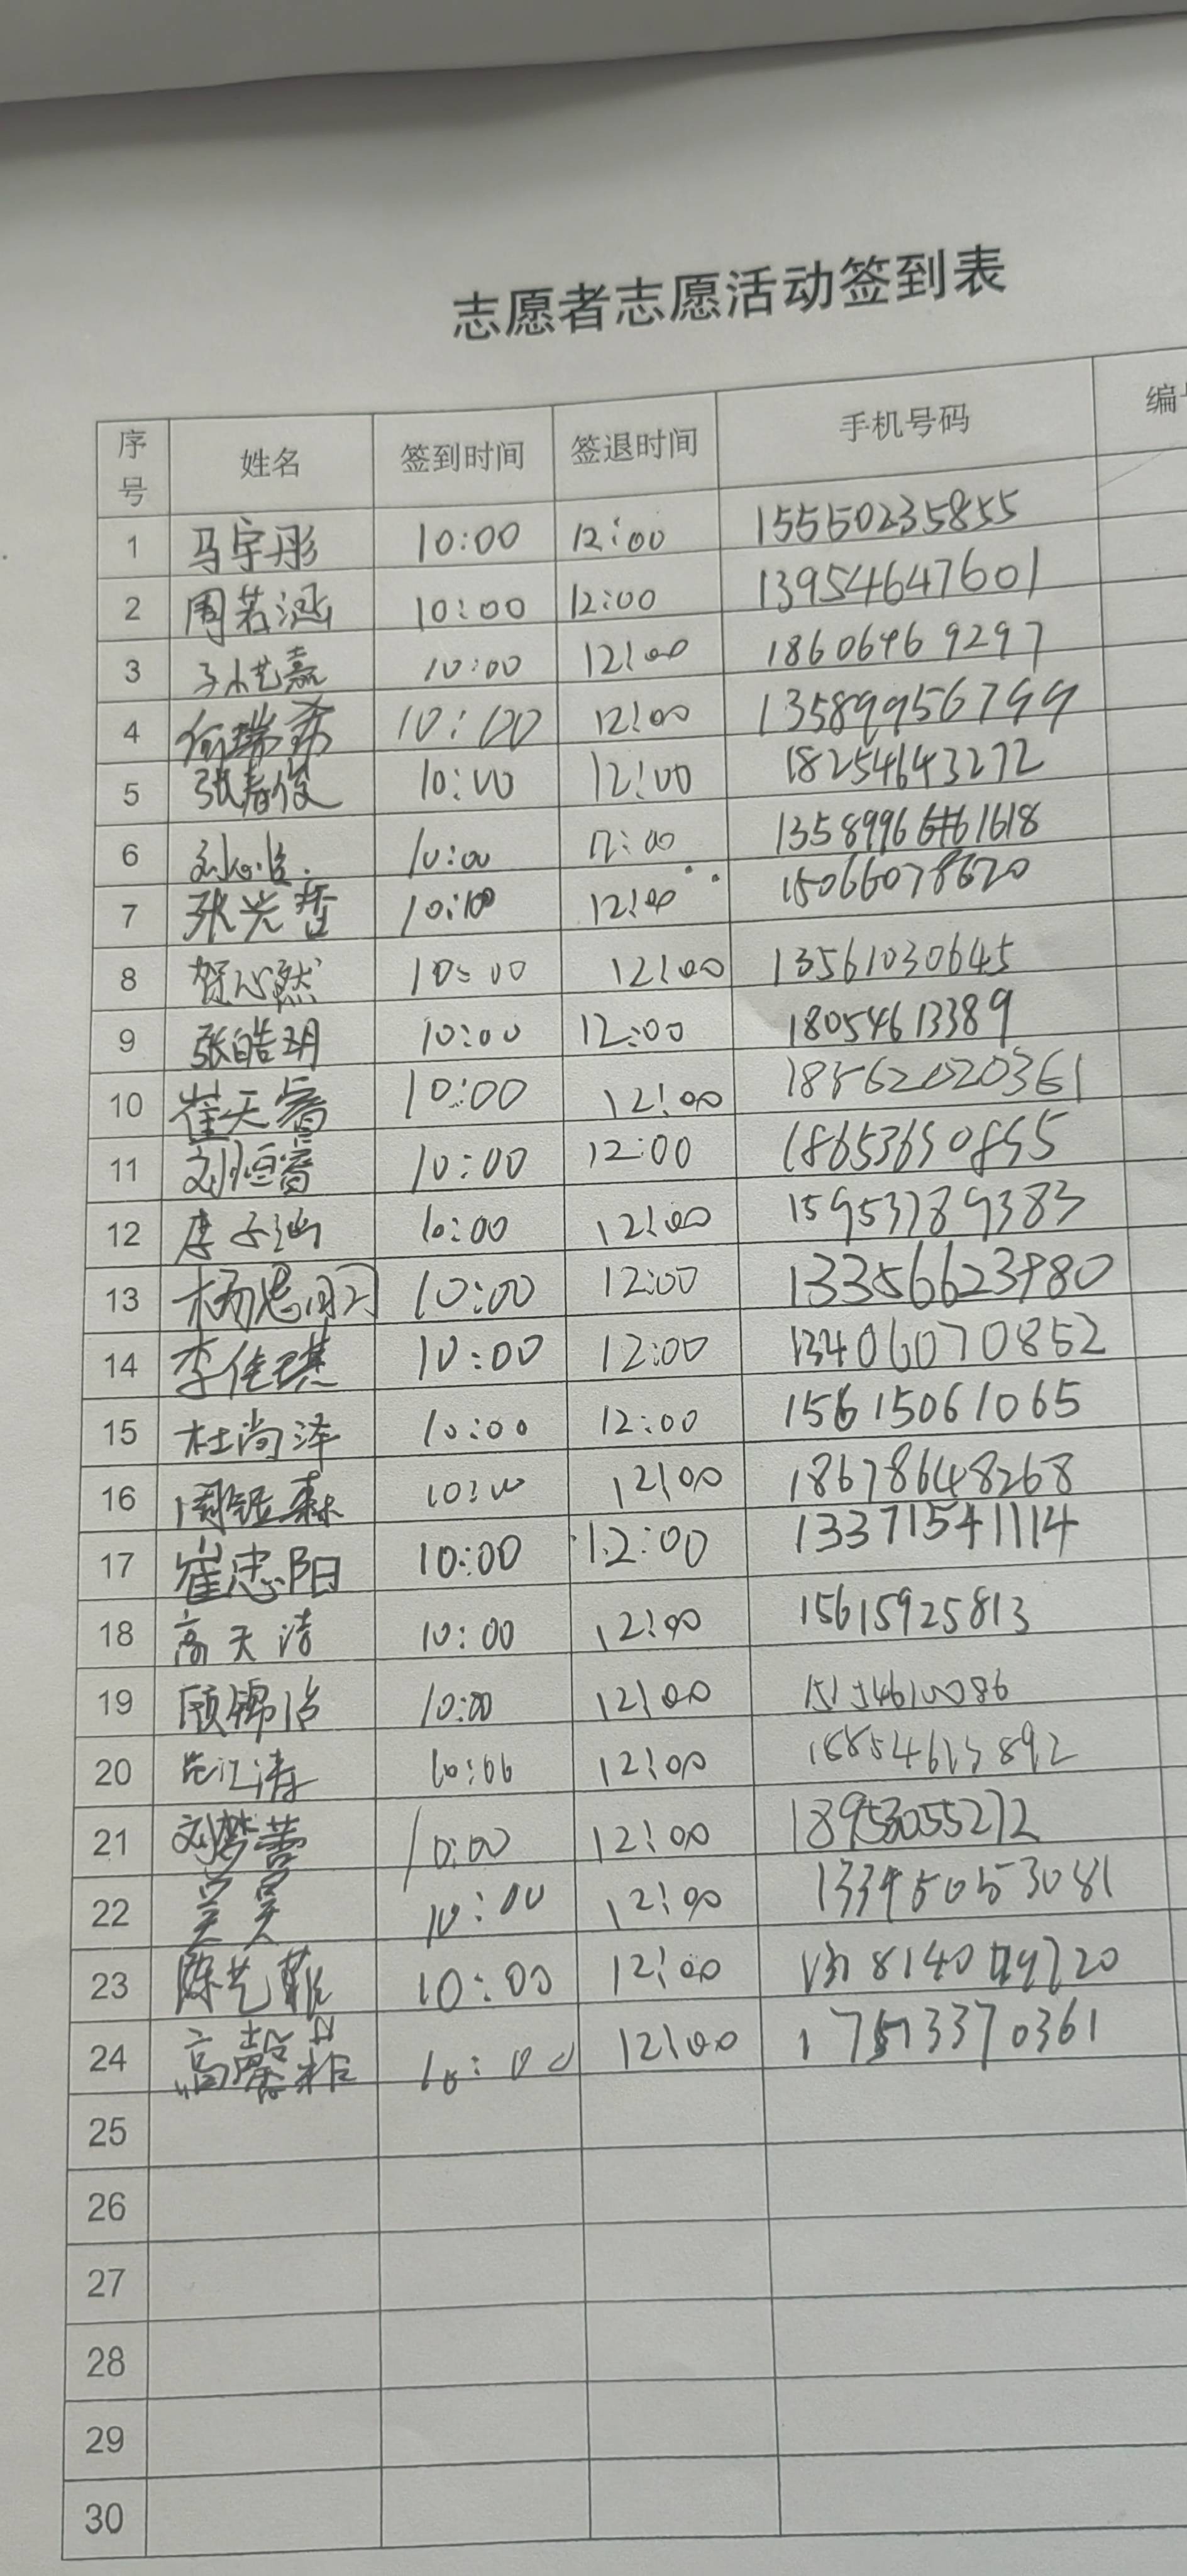 志愿者志愿活动签到表
序号 姓名 签到时间 签退时间 手机号码
1 马宇彤 10:00 12:00 15550235855
2 周若涵 10:00 12:00 13954647601
3 孙艺嘉 10:00 12:00 18606469297
4 何瑞希 10:00 12:00 13589956799
5 张春俊 10:00 12:00 18254643272
6 10:00 12:00
7 张兴哲 10:00 12:00 15066078620
8 贺心然 10:00 12:00 13561030645
9 张皓玥 10:00 12:00 18054613389
10 崔天睿 10:00 12:00
11 刘恒睿 10:00 12:00 18653650855
12 李子涵 10:00 12:00 15953789383
13 10:00 12:00 13356623980
14 李佳琪 10:00 12:00 13406070852
15 杜尚泽 10:00 12:00 15615061065
16 10:00 12:00 18678648268
17 崔忠阳 10:00 12:00 13371541114
18 高天 10:00 12:00 15615925813
19 顾锦治 10:00 12:00
20 10:00 12:00
21 刘梦蕾 10:00 12:00 18953055272
22 吴昊 10:00 12:00
23 陈艺菲 10:00 12:00
24 高馨 10:00 12:00
25
26
27
28
29
30